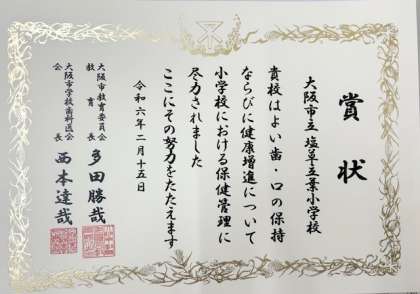 賞状
大阪市立 塩草立葉小学校
貴校はよい歯・口の保持
ならびに健康増進について
小学校における保健管理に
尽力されました
ここにその努力をたたえます
令和六年二月十五日
大阪市教育委員会
教育長 多田勝哉
大阪市学校歯科医会
会長 西本達哉